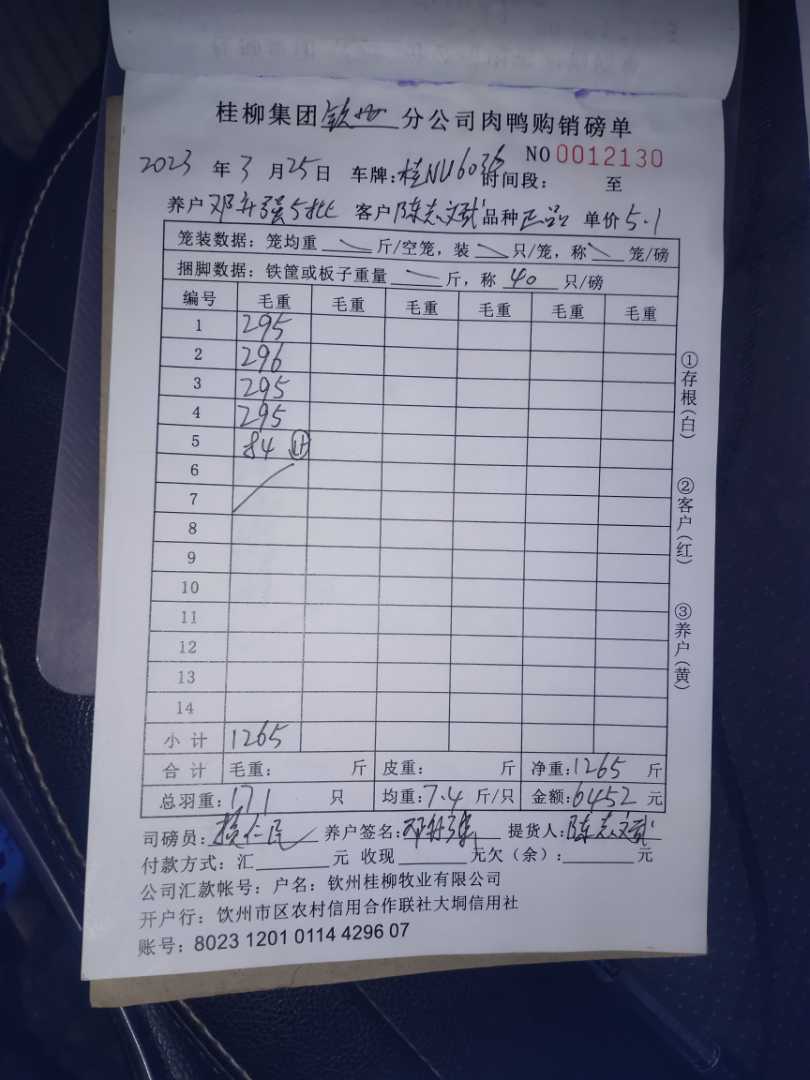 桂柳集团钦州分公司肉鸭购销磅单
NO 0012130
2023 年 3 月 25 日 车牌：桂NU6036 时间段： 至
养户 邓升强5批 客户 陈志斌 品种 正品 单价 5.1
笼装数据：笼均重 斤/空笼，装 只/笼，称 笼/磅
捆脚数据：铁筐或板子重量 斤，称 40 只/磅
编号 毛重 毛重 毛重 毛重 毛重 毛重
1 295
2 296
3 295
4 295
5 84 11
6
7
8
9
10
11
12
13
14
小 计 1265
合 计 毛重： 斤 皮重： 斤 净重：1265 斤
总羽重：171 只 均重：7.4 斤/只 金额：6452 元
司磅员： 仁民 养户签名：邓升强 提货人：陈志斌
付款方式：汇 元 收现 元欠（余）： 元
公司汇款帐号：户名：钦州桂柳牧业有限公司
开户行：饮州市区农村信用合作联社大垌信用社
账号：8023 1201 0114 4296 07
①存根（白）
②客户（红）
③养户（黄）